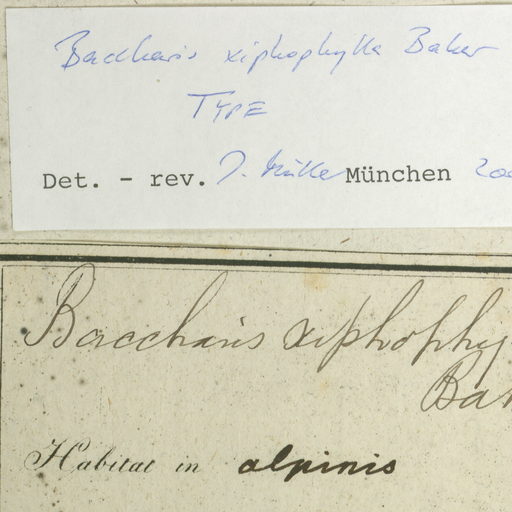 Baccharis xiphophylla Baker
TYPE
Det. - rev. J. Müller München 200
Baccharis xiphophy
Bak
Habitat in alpinis